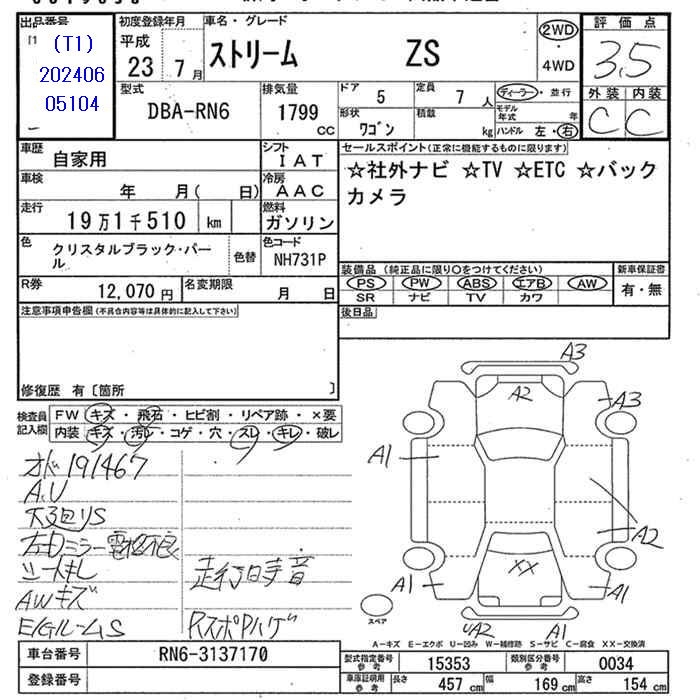 出品番号
(T1)
202406
05104
初度登録年月
平成
23 7月
車名・グレード
ストリーム ZS
2WD
・
4WD
評価点
3.5
外装 内装
C C
型式
DBA-RN6
排気量
1799
cc
ドア
5
定員
7 人
ディーラー・並行
形状
ワゴン
積載
kg
モデル年式 年
ハンドル 左・右
車歴
自家用
シフト
IAT
車検
年 月( 日)
冷房
AAC
走行
19万1千510 km
燃料
ガソリン
色
クリスタルブラック・パール
色替
色コード
NH731P
R券
12,070 円
名変期限
月 日
セールスポイント(正常に機能するものに限ります)
☆社外ナビ ☆TV ☆ETC ☆バック
カメラ
装備品(純正品に限り○をつけてください)
PS PW ABS エアB AW
SR ナビ TV カワ
新車保証書
有・無
後日品
注意事項申告欄(不具合内容等は具体的に記入して下さい)
修復歴 有〔箇所 〕
検査員
記入欄
FW キズ・飛石・ヒビ割・リペア跡・×要
内装 キズ・汚レ・コゲ・穴・スレ・キレ・破レ
191467
A.U
左Dミラー
AWキズ
走行時音
E/GルームS
A3
A2
A3
A1
A2
XX
A1
A1
スペア
UA2
A1
A-キズ E-エクボ U-凹み W-補修跡 S-サビ C-腐食 XX-交換済
車台番号
RN6-3137170
登録番号
型式指定番号
参考
15353
類別区分番号
参考
0034
車庫証明用
参考
長さ
457 cm
幅
169 cm
高さ
154 cm